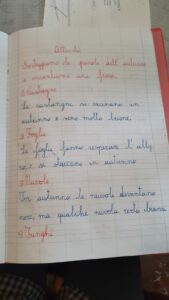 Attività
Scriviamo le parole dell'autunno
e inventiamo una frase.
1) Castagne
Le castagne si mangiano in
autunno e sono molto buone.
2) Foglie
Le foglie fanno respirare l'albe
ro, e si staccano in autunno
3) Nuvole
In autunno le nuvole diventano
nere, ma qualche nuvola resta bianca.
4) Funghi